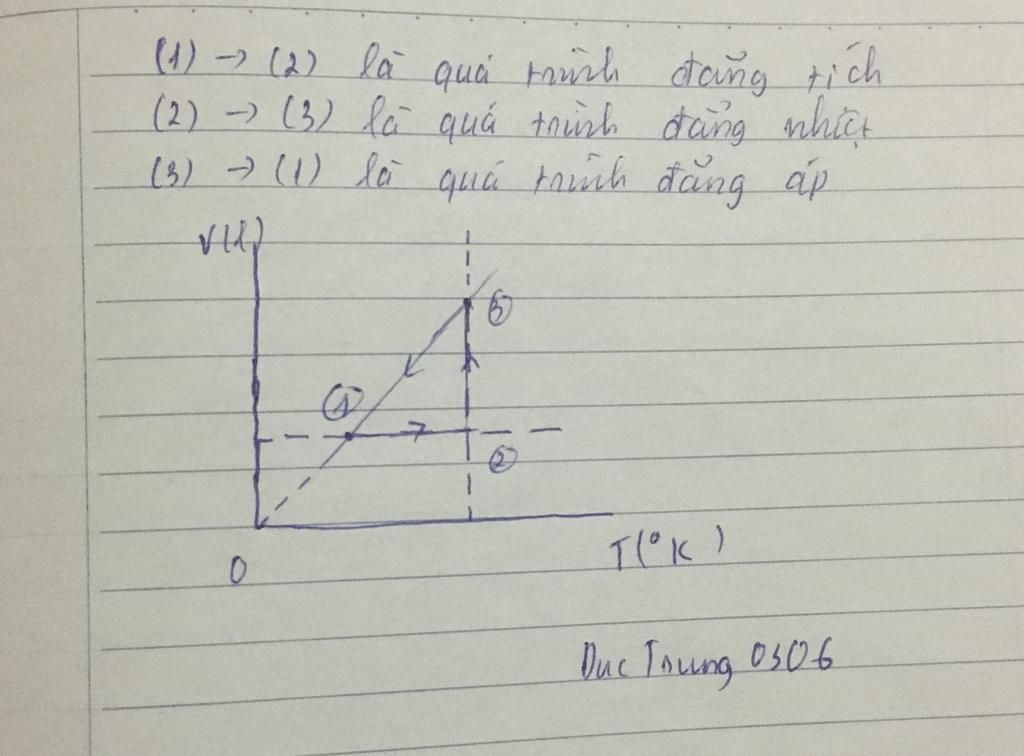 (1) → (2) là quá trình đẳng tích
(2) → (3) là quá trình đẳng nhiệt
(3) → (1) là quá trình đẳng áp
V(l)
③
①
②
T(°K)
0
Duc Trung 0306